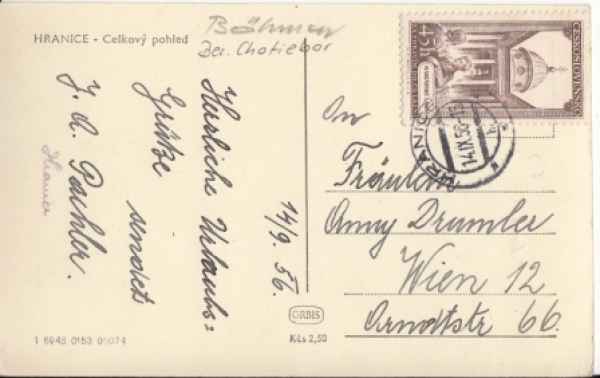 HRANICE - Celkový pohled
Böhmen
Ber. Chotiebor
Herzliche Urlaubs=
Grüße
sendet
J. A. Pachler.
Hranice
14/9. 56.
ČESKOSLOVENSKO
45h
HRANICE
14.IX.56
An
Fräulein
Anny Drumler
Wien 12
Arndtstr 66.
ORBIS
Kčs 2,50
1 5948 0153 05074